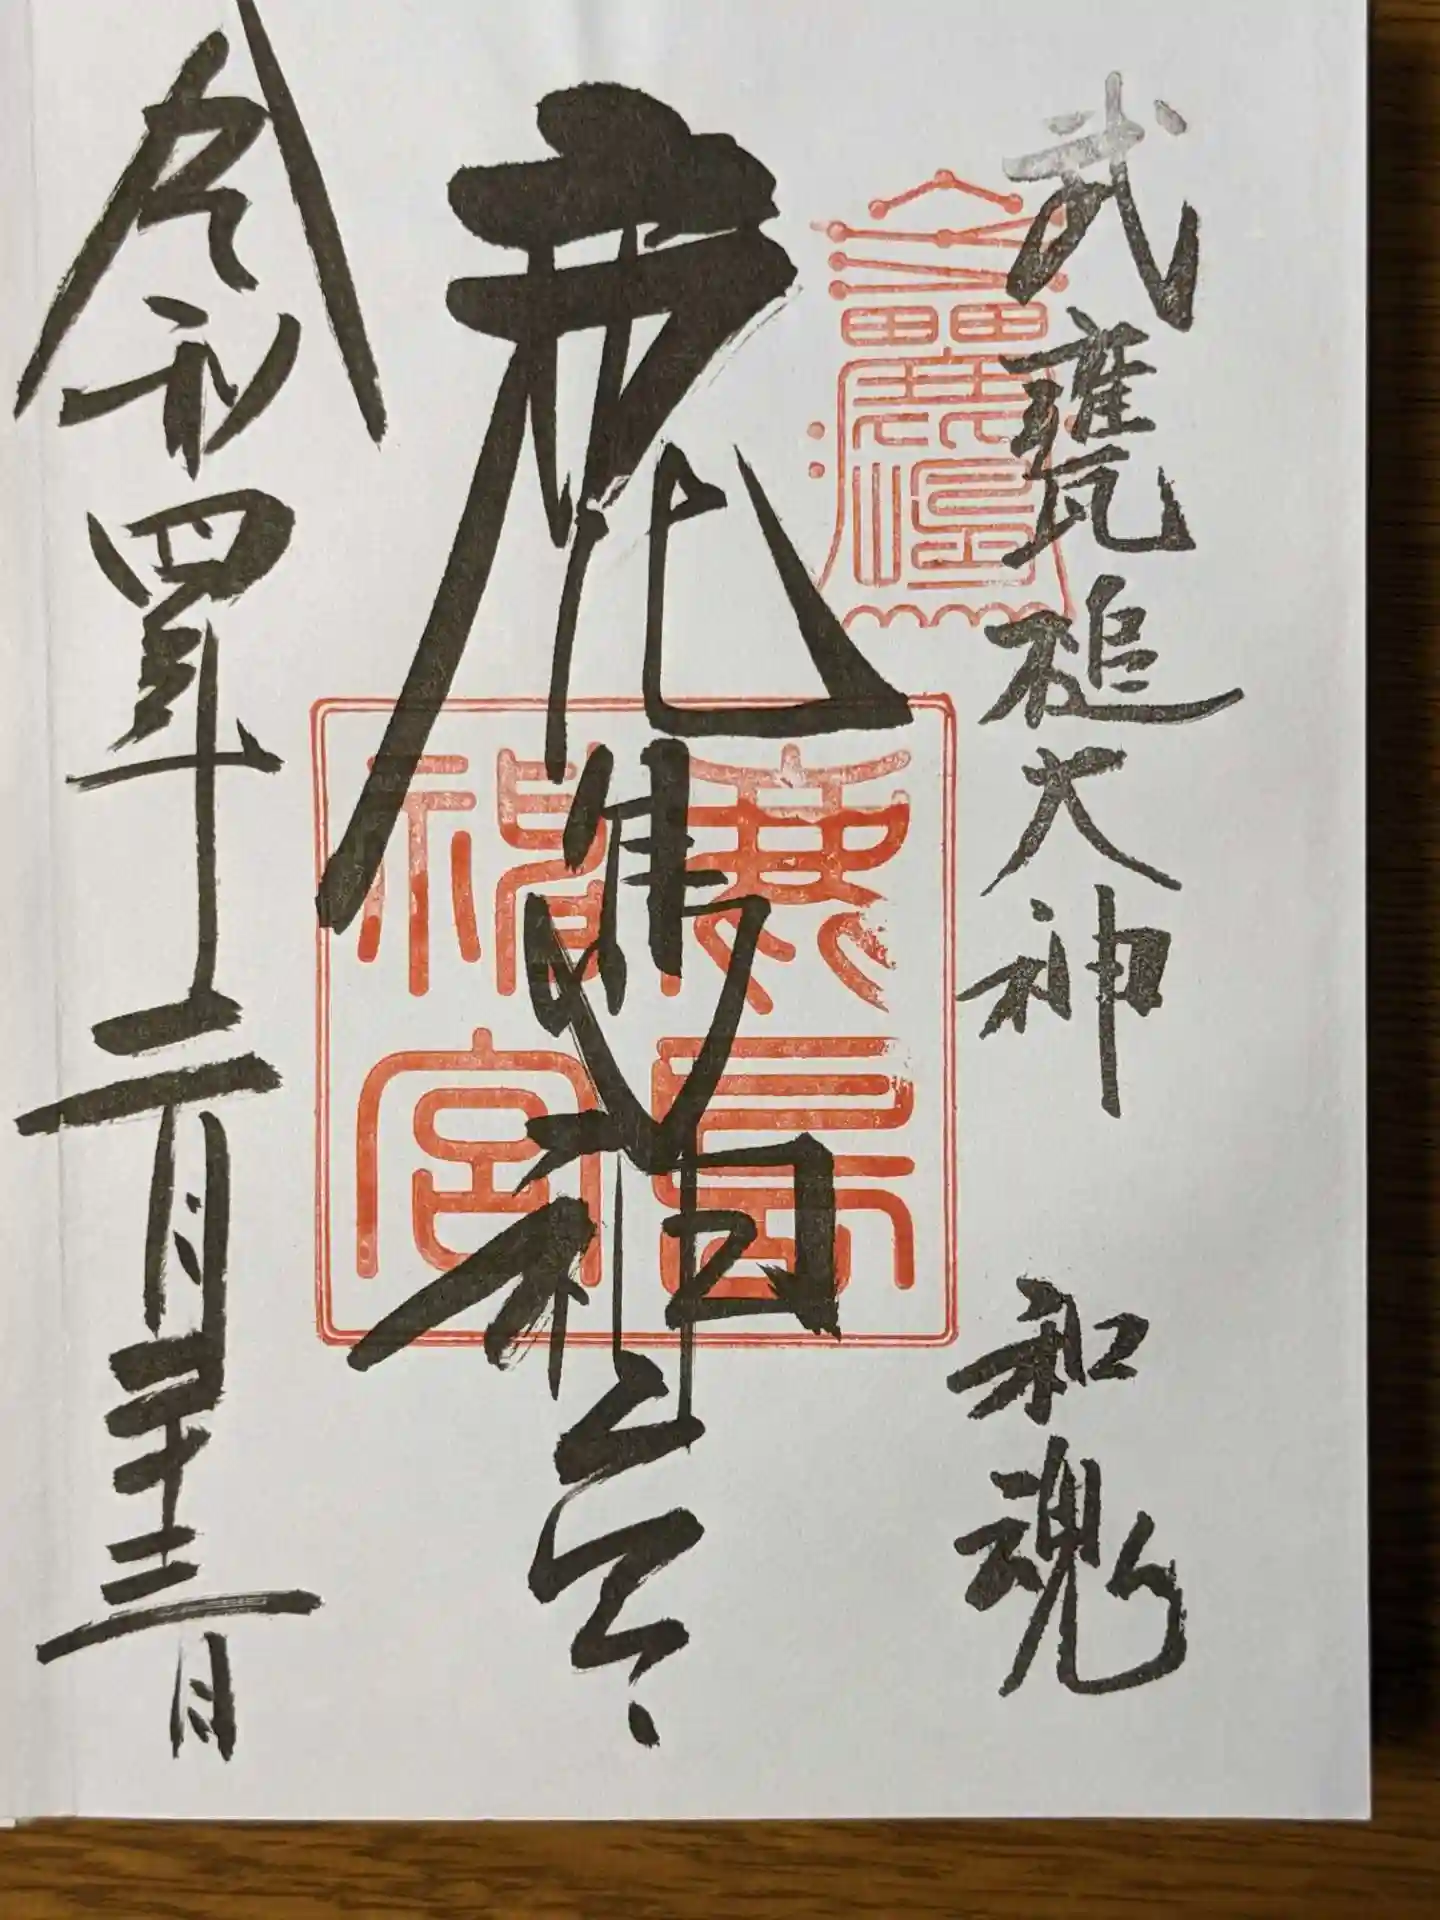 武甕槌大神 和魂
鹿島神宮
鹿島
神宮
令和四年二月二十三日